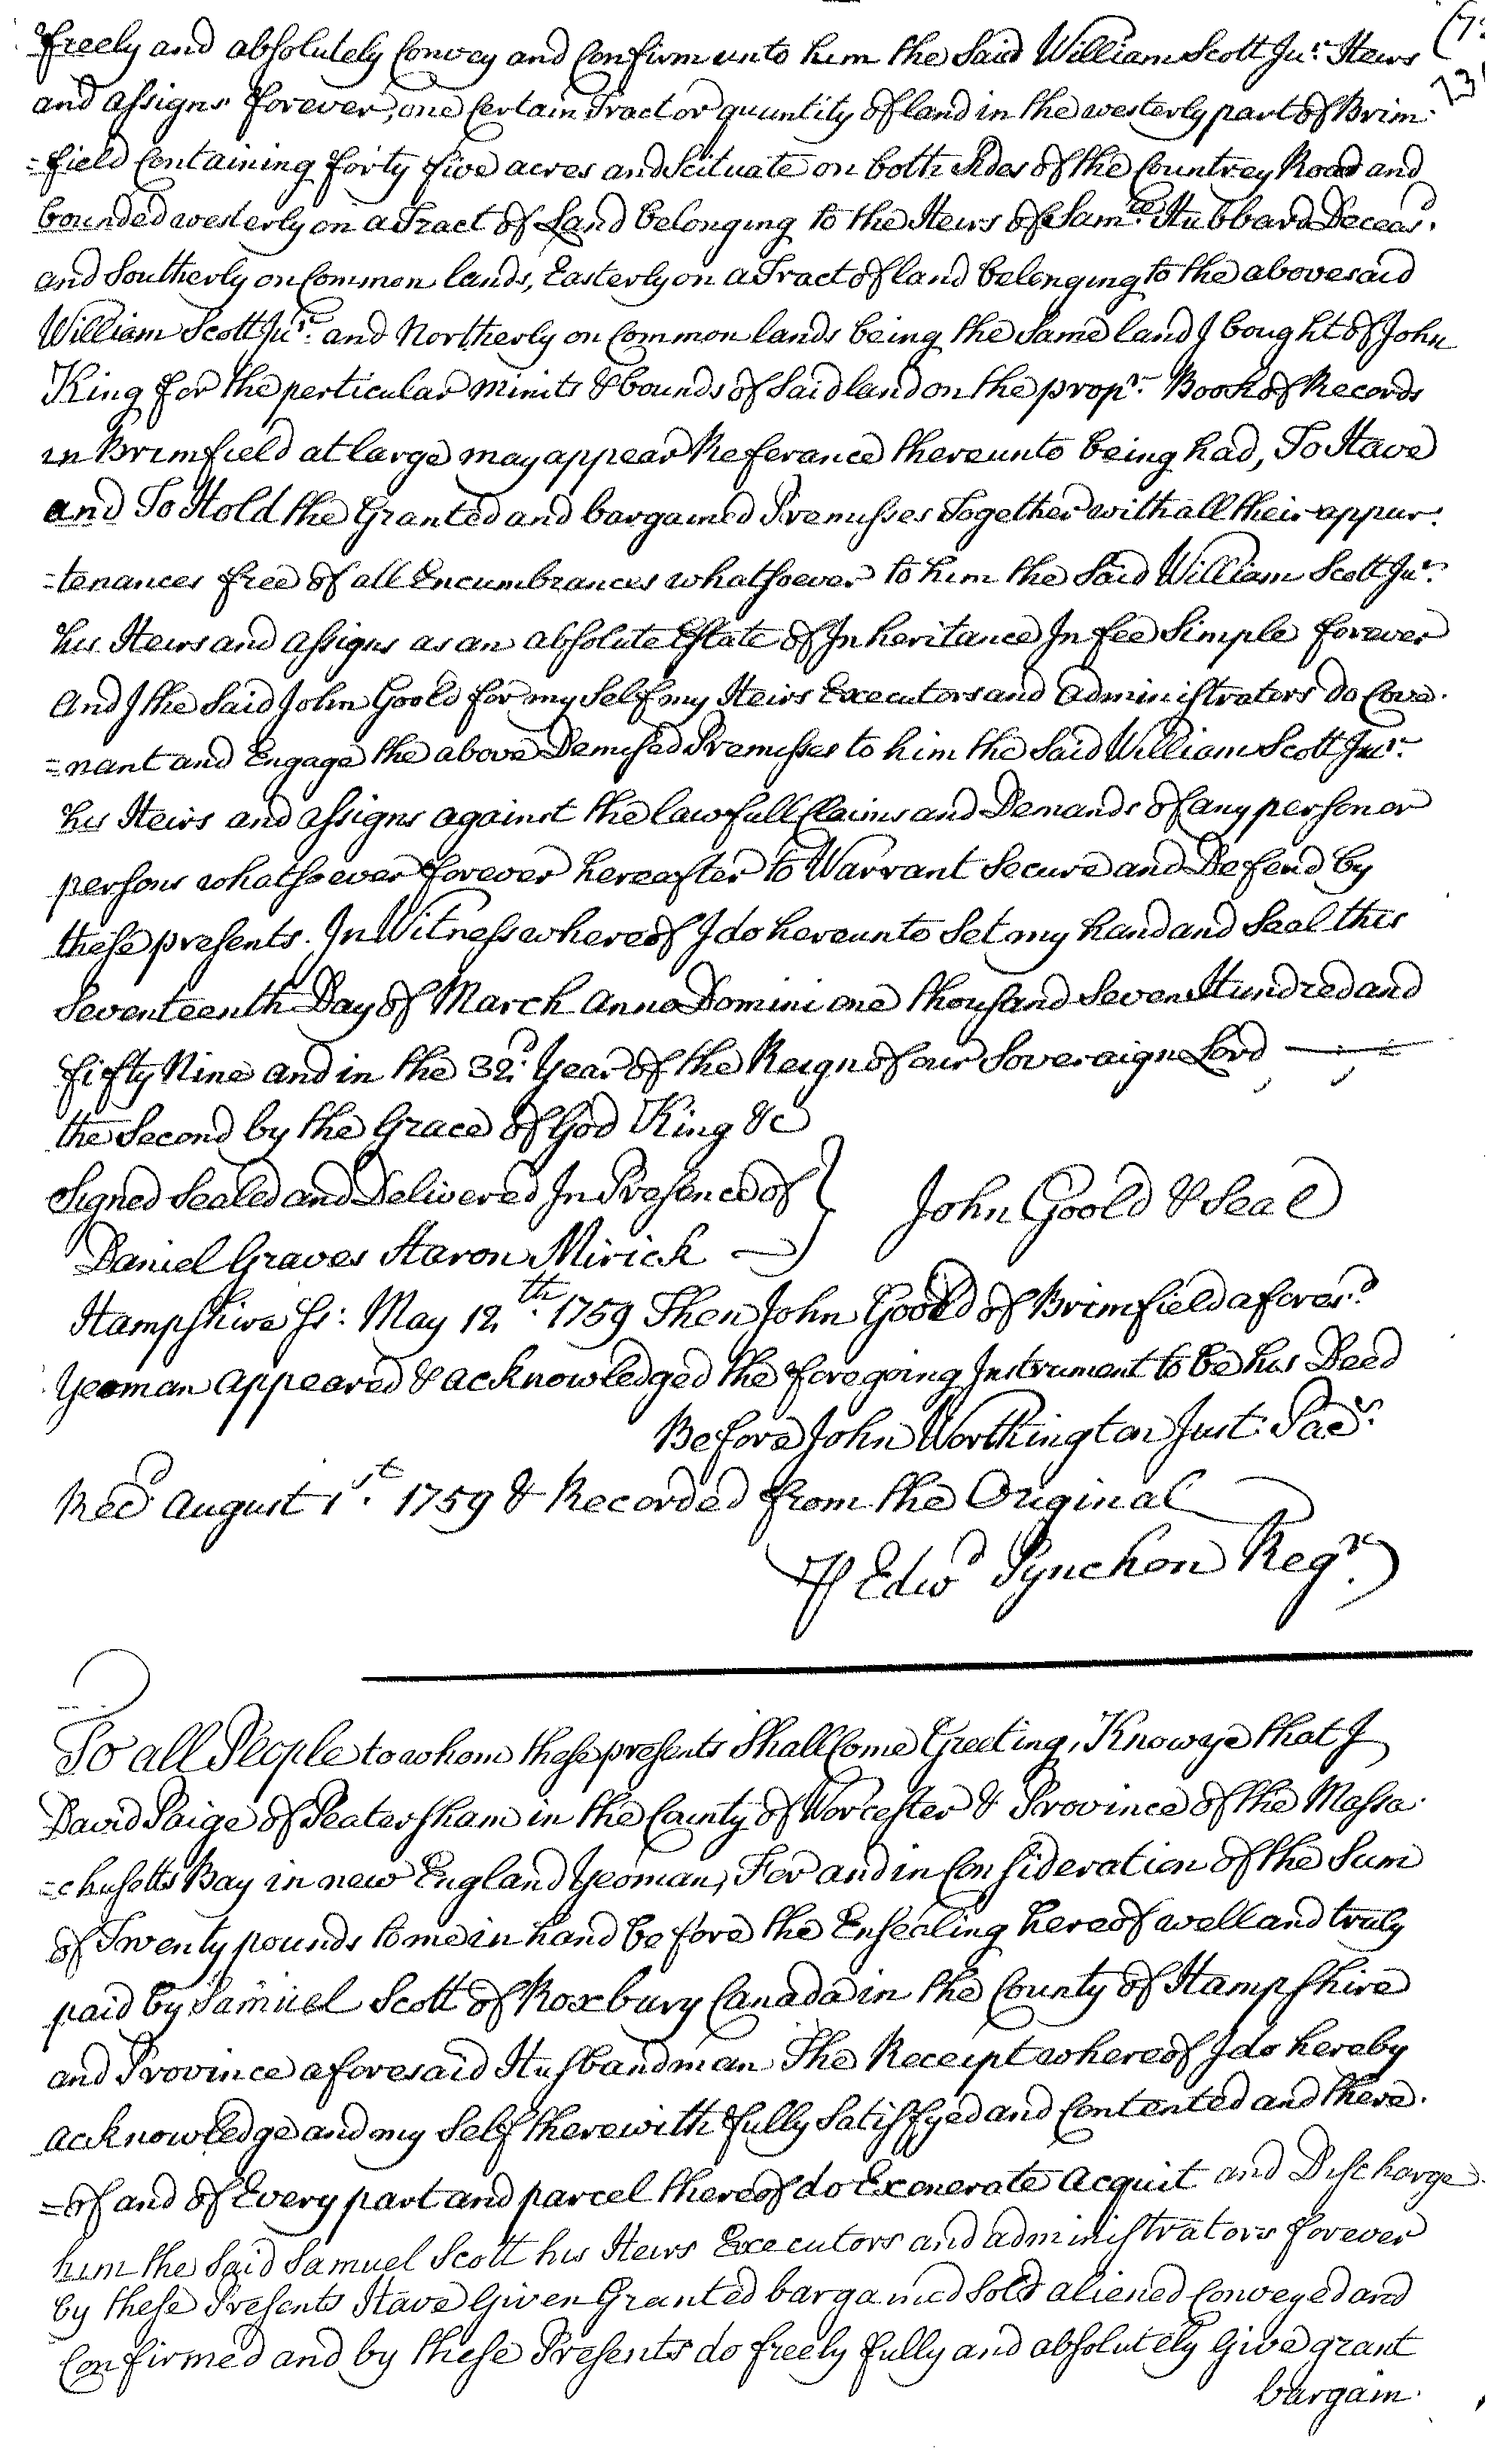 freely and absolutely Convey and Confirm unto him the Said William Scott Jur. Heirs
and assigns forever, one Certain Tract or quantity of land in the westerly part of Brim-
=field Containing forty five acres and Scituate on both sides of the Countrey Road and
bounded westerly on a Tract of Land belonging to the Heirs of Samll. Hubbard Deceasd.
and Southerly on Common lands, Easterly on a Tract of land belonging to the abovesaid
William Scott Jur. and Northerly on Common lands being the Same land I bought of John
King for the perticular minits & bounds of Said land on the propr. Book of Records
in Brimfield at large may appear Referance thereunto being had, To Have
and To Hold the Granted and bargained Premisses Together with all their appur-
=tenances free of all Encumbrances whatsoever to him the Said William Scott Jur.
his Heirs and assigns as an absolute Estate of Inheritance In fee Simple forever
And I the Said John Goold for my Self my Heirs Executors and administraters do Cove-
=nant and Engage the above Demised Premisses to him the Said William Scott Junr.
his Heirs and assigns against the lawfull Claims and Demands of any person or
persons whatsoever forever hereafter to Warrant Secure and Defend by
these presents. In Witness whereof I do hereunto Set my hand and Seal this
Seventeenth Day of March Anno Domini one thousand Seven Hundred and
fifty Nine and in the 32d. Year of the Reign of our Soveraign Lord
the Second by the Grace of God King &c
Signed Sealed and Delivered In Presence of } John Goold & Seal
Daniel Graves Aaron Mirick
Hampshire Ss: May 12th. 1759 Then John Goold of Brimfield aforesd.
Yeoman appeared & acknowledged the foregoing Instrument to be his Deed
Before John Worthington Just: Pacs.
Recd August 1st. 1759 & Recorded from the Original
℔ Edwd Pynchon Regr.
To all People to whom these presents Shall Come Greeting, Know ye that I
David Paige of Peatersham in the County of Worcester & Province of the Massa-
=chusetts Bay in new England Yeoman, For and in Consideration of the Sum
of Twenty pounds to me in hand before the Ensealing hereof well and truly
paid by Samuel Scott of Roxbury Canada in the County of Hampshire
and Province aforesaid Husbandman The Receipt whereof I do hereby
acknowledge and my Self therewith fully Satisfyed and Contented and there-
=of and of Every part and parcel thereof do Exonerate acquit and Discharge
him the Said Samuel Scott his Heirs Executors and administrators forever
by these Presents Have Given Granted bargained Sold aliened Conveyed and
Confirmed and by these Presents do freely fully and absolutely Give grant
bargain